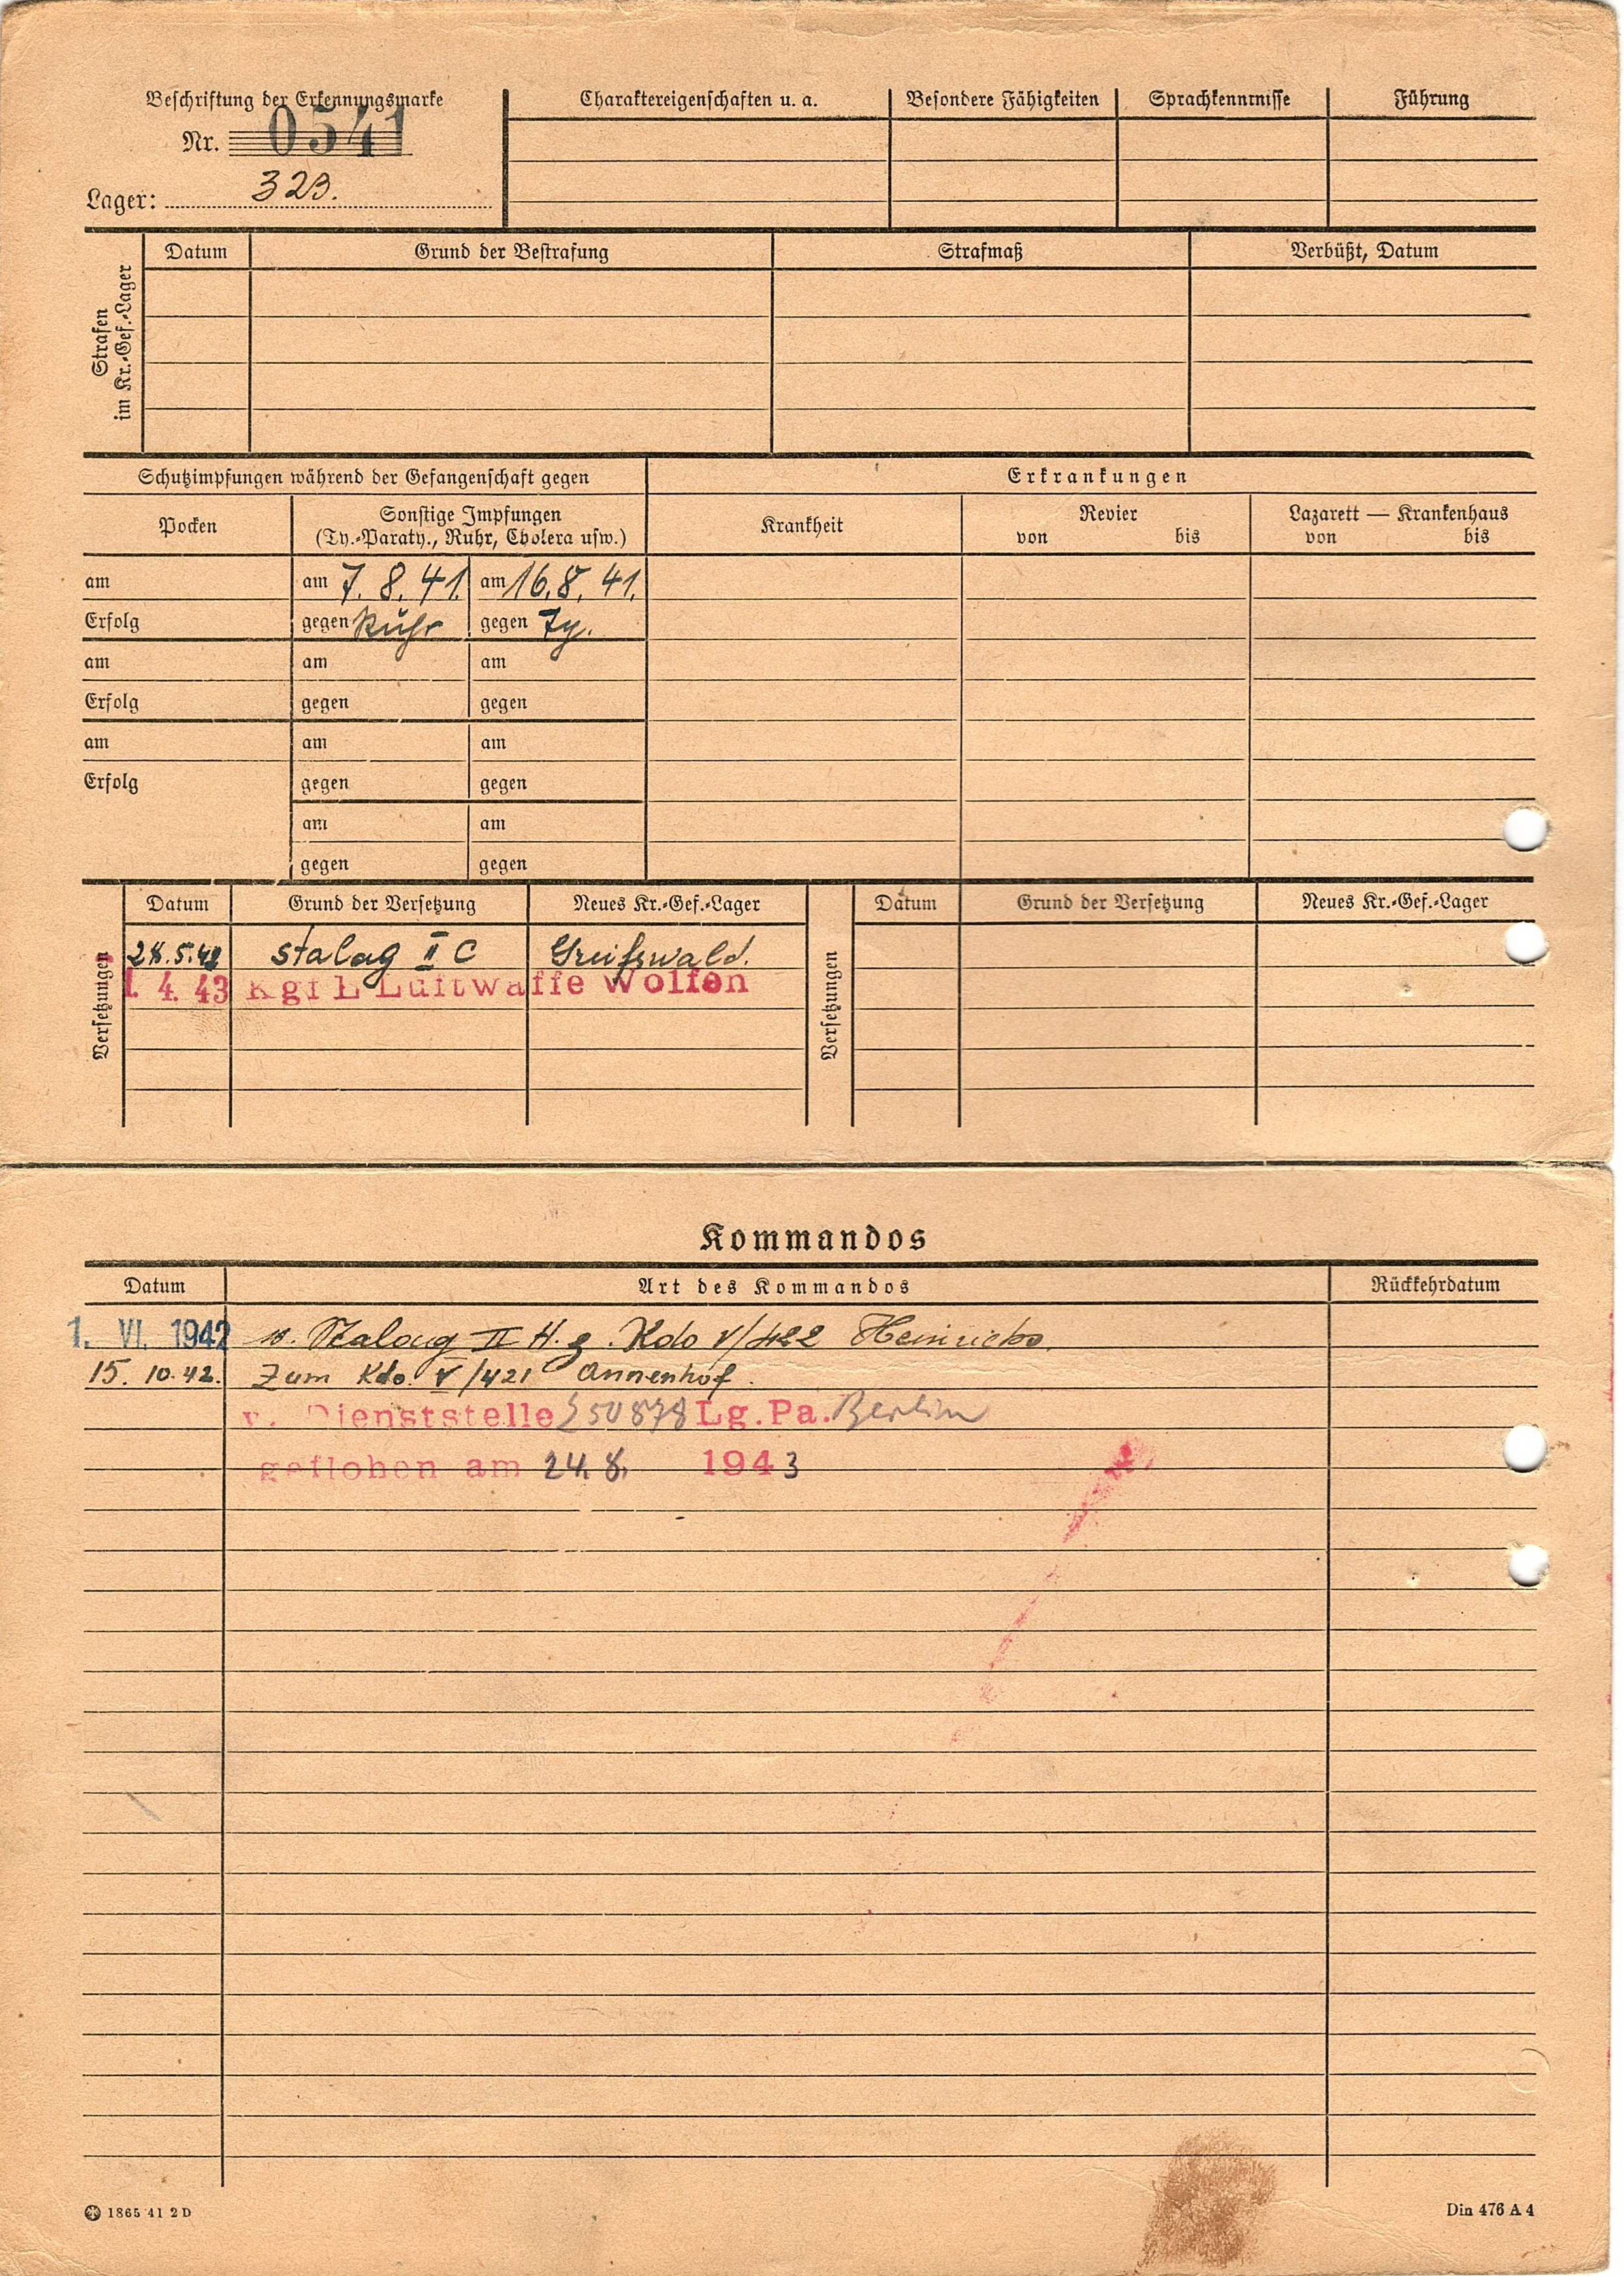 Beschriftung der Erkennungsmarke
Nr. 0541
Lager: 323.
Charaktereigenschaften u. a. Besondere Fähigkeiten Sprachkenntnisse Führung
Strafen im Kr.-Gef.-Lager
Datum Grund der Bestrafung Strafmaß Verbüßt, Datum
Schutzimpfungen während der Gefangenschaft gegen Erkrankungen
Pocken Sonstige Impfungen (Ty.-Paraty., Ruhr, Cholera usw.) Krankheit Revier von bis Lazarett — Krankenhaus von bis
am am 7. 8. 41. am 16. 8. 41.
Erfolg gegen Ruhr gegen Ty.
am am am
Erfolg gegen gegen
am am am
Erfolg gegen gegen
am am
gegen gegen
Versetzungen Datum Grund der Versetzung Neues Kr.-Gef.-Lager Versetzungen Datum Grund der Versetzung Neues Kr.-Gef.-Lager
5.42 Stalag II C Greifswald.
1. 4. 43 Kgf L Luftwaffe Wolfen
Kommandos
Datum Art des Kommandos Rückkehrdatum
1. VI. 1942 Stalag II H. z. Kdo V/422 Heinrichs.
15. 10. 42. Zum Kdo V/421 Annenhof.
v. Dienststelle L50878 Lg.Pa. Berlin
geflohen am 24. 8. 1943
1865 41 2 D
Din 476 A 4